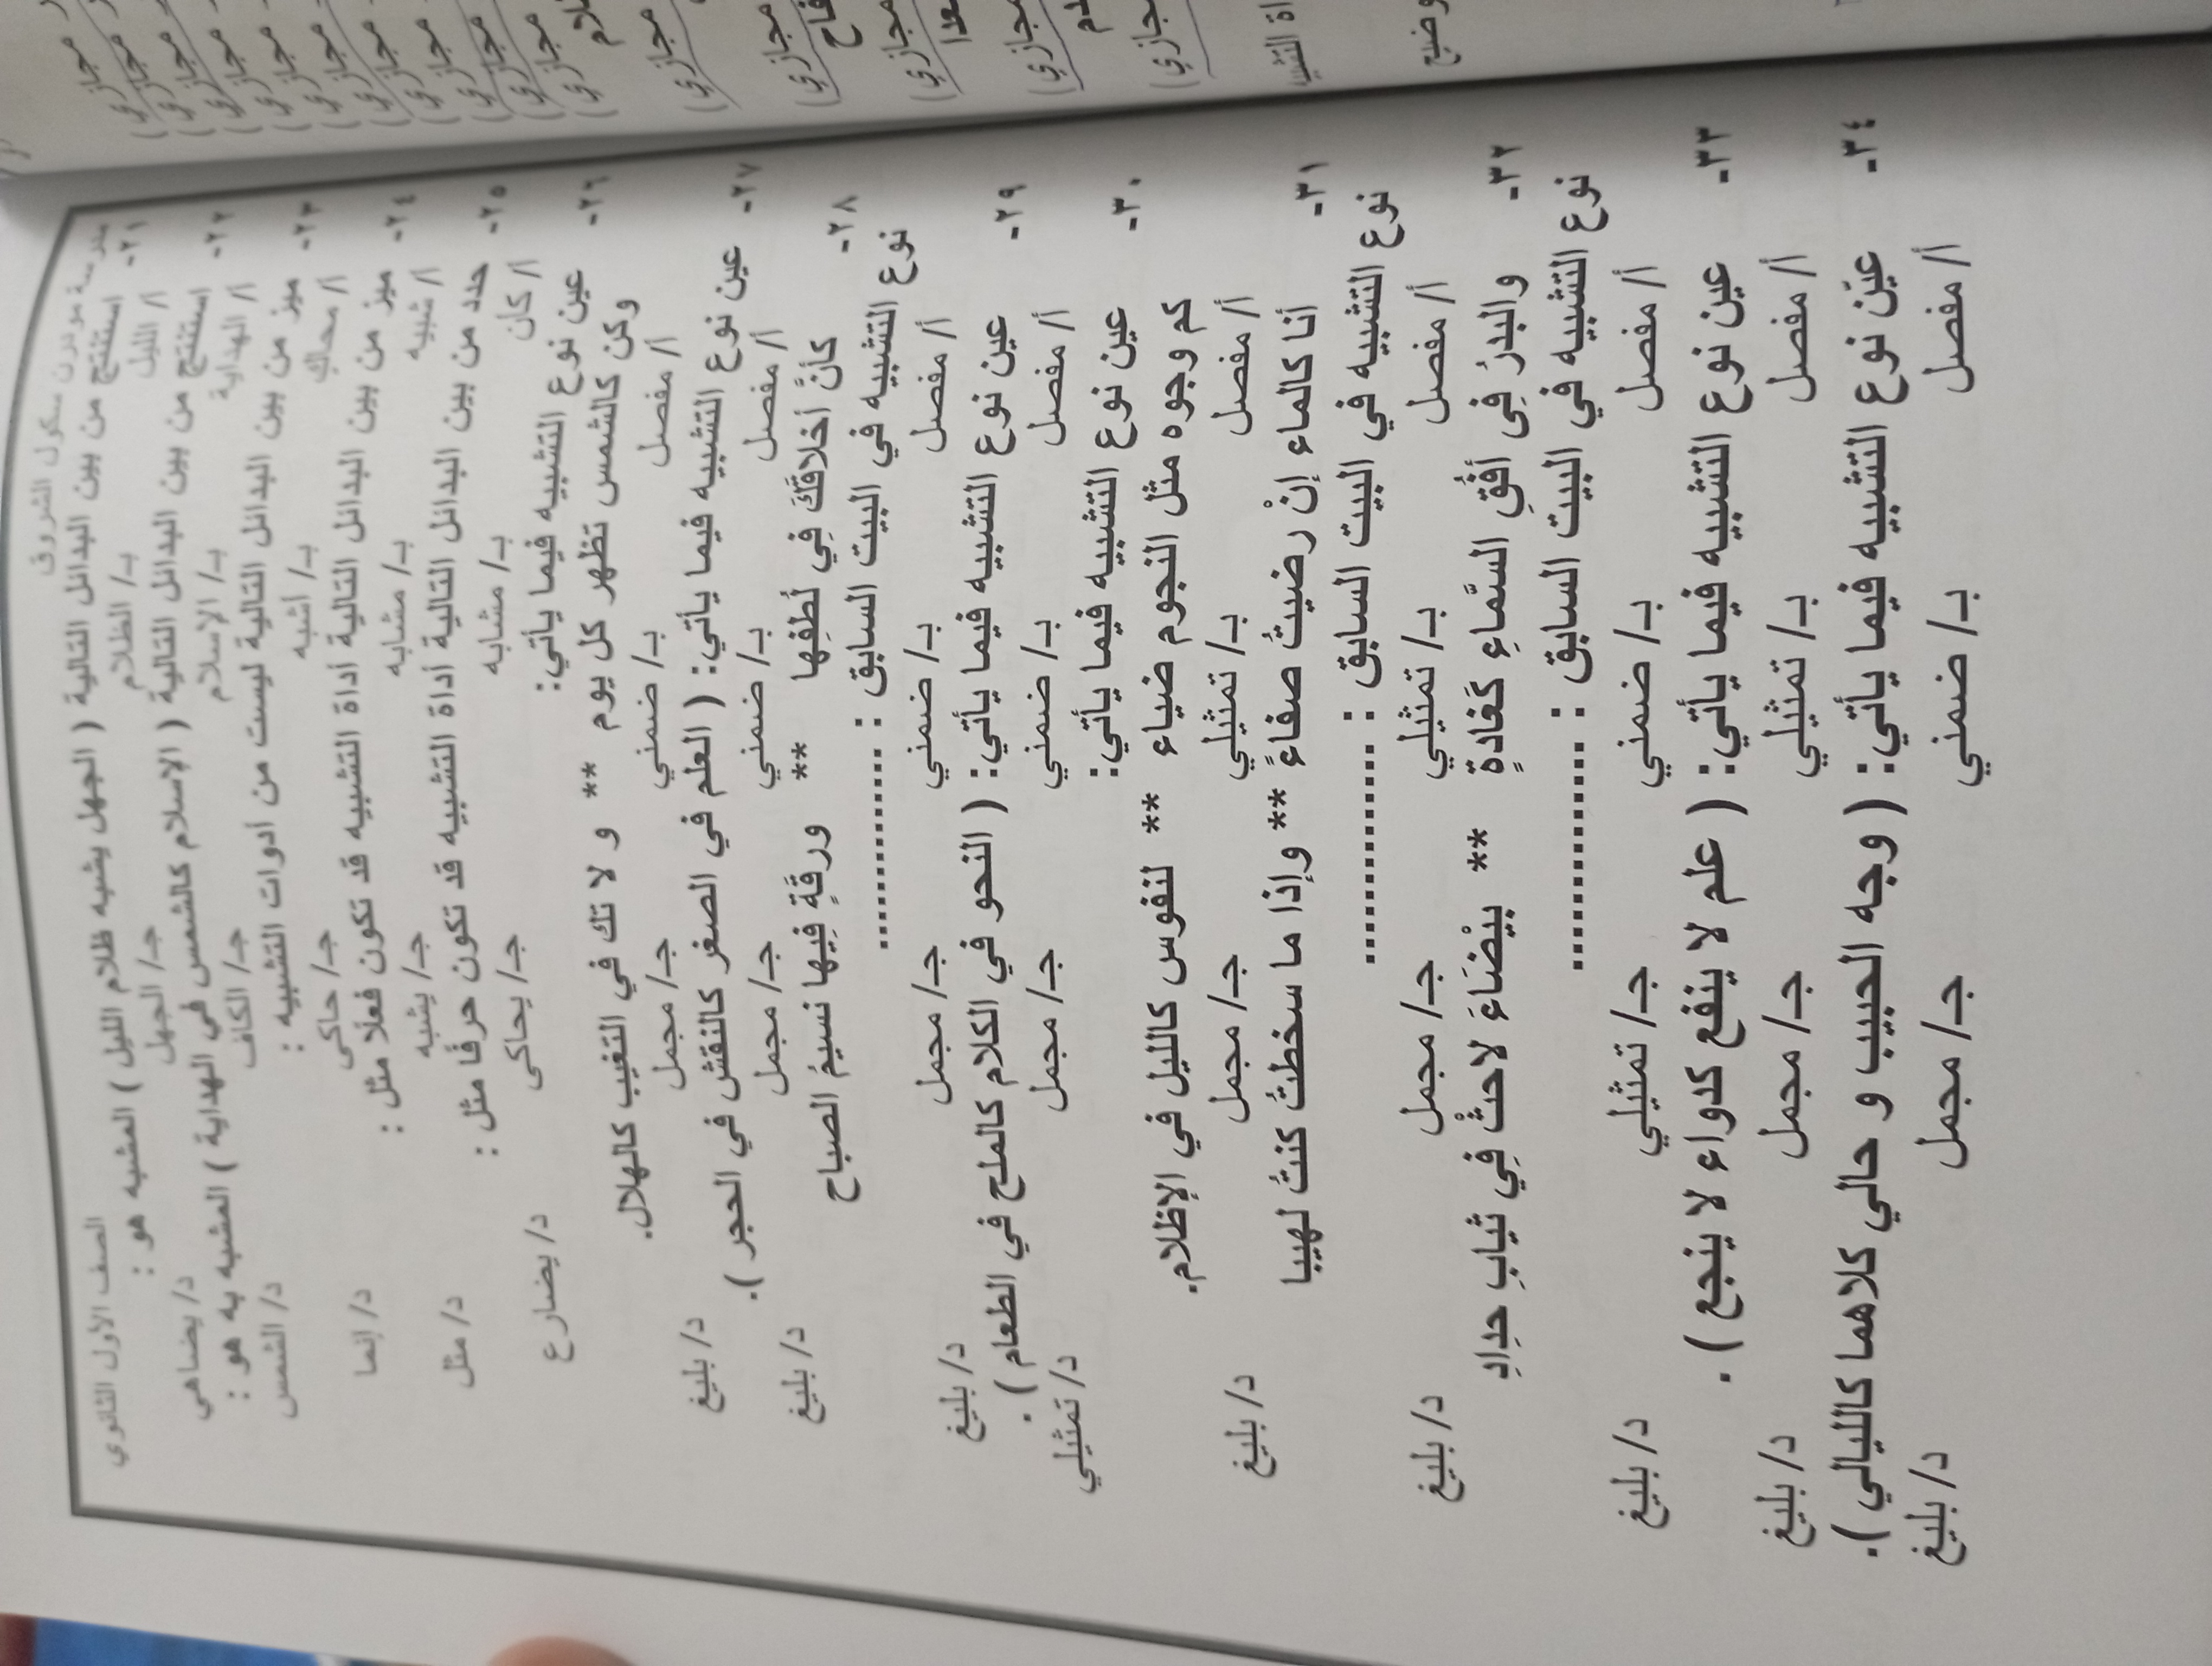 مدرسة مودرن سكول الشروق
الصف الأول الثانوي
٢١- استنتج من بين البدائل التالية ( الجهل يشبه ظلام الليل ) المشبه هو :
أ/ الليل بـ/ الظلام جـ/ الجهل د/ يضاهي
٢٢- استنتج من بين البدائل التالية ( الإسلام كالشمس في الهداية ) المشبه به هو :
أ/ الهداية بـ/ الإسلام جـ/ الكاف د/ الشمس
٢٣- ميز من بين البدائل التالية ليست من أدوات التشبيه :
أ/ محاكِ بـ/ أشبه جـ/ حاكى د/ إنما
٢٤- ميز من بين البدائل التالية أداة التشبيه قد تكون فعلًا مثل :
أ/ شبيه بـ/ مشابه جـ/ يشبه د/ مثل
٢٥- حدد من بين البدائل التالية أداة التشبيه قد تكون حرفًا مثل :
أ/ كأن بـ/ مشابه جـ/ يحاكى د/ يضارع
٢٦- عين نوع التشبيه فيما يأتي:
وكن كالشمس تظهر كل يوم ** و لا تك في التغيب كالهلال.
أ/ مفصل بـ/ ضمني جـ/ مجمل د/ بليغ
٢٧- عين نوع التشبيه فيما يأتي: ( العلم في الصغر كالنقش في الحجر ).
أ/ مفصل بـ/ ضمني جـ/ مجمل د/ بليغ
٢٨- كأنَّ أخلاقَكَ فِي لُطفِها ** ورقَّةٍ فِيها نسيمُ الصباح
نوع التشبيه في البيت السابق : ..............
أ/ مفصل بـ/ ضمني جـ/ مجمل د/ بليغ
٢٩- عين نوع التشبيه فيما يأتي: ( النحو في الكلام كالملح في الطعام ) .
أ/ مفصل بـ/ ضمني جـ/ مجمل د/ تمثيلي
٣٠- عين نوع التشبيه فيما يأتي:
كم وجوه مثل النجوم ضياء ** لنفوس كالليل في الإظلام.
أ/ مفصل بـ/ تمثيلي جـ/ مجمل د/ بليغ
٣١- أنا كالماء إنْ رضيتُ صفاءً ** وإذا ما سخطتُ كنتُ لهيبا
نوع التشبيه في البيت السابق : ..............
أ/ مفصل بـ/ تمثيلي جـ/ مجمل د/ بليغ
٣٢- والبدرُ فِى أفُقِ السَّماءِ كَغادةٍ ** بيْضَاءَ لاحتْ فِي ثيابِ حدِادِ
نوع التشبيه في البيت السابق : ..............
أ/ مفصل بـ/ ضمني جـ/ تمثيلي د/ بليغ
٣٣- عين نوع التشبيه فيما يأتي: ( علم لا ينفع كدواء لا ينجع ) .
أ/ مفصل بـ/ تمثيلي جـ/ مجمل د/ بليغ
٣٤- عيّن نوع التشبيه فيما يأتي: ( وجه الحبيب و حالي كلاهما كالليالي ).
أ/ مفصل بـ/ ضمني جـ/ مجمل د/ بليغ